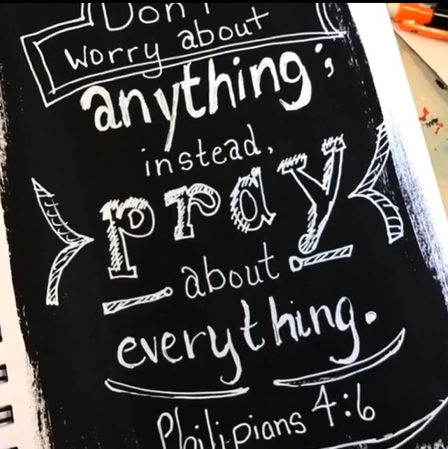 Don't
worry about
anything;
instead,
pray
about
everything.
Philipians 4:6